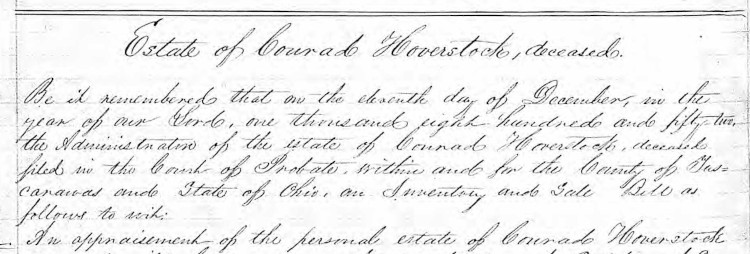 Estate of Conrad Hoverstock, deceased.
Be it remembered that on the eleventh day of December, in the
year of our Lord, one thousand eight hundred and fifty-two,
the Administrator of the estate of Conrad Hoverstock, deceased
filed in the Court of Probate, within and for the County of Tus=
carawas and State of Ohio, an Inventory and Sale Bill as
follows to wit:
An appraisement of the personal estate of Conrad Hoverstock